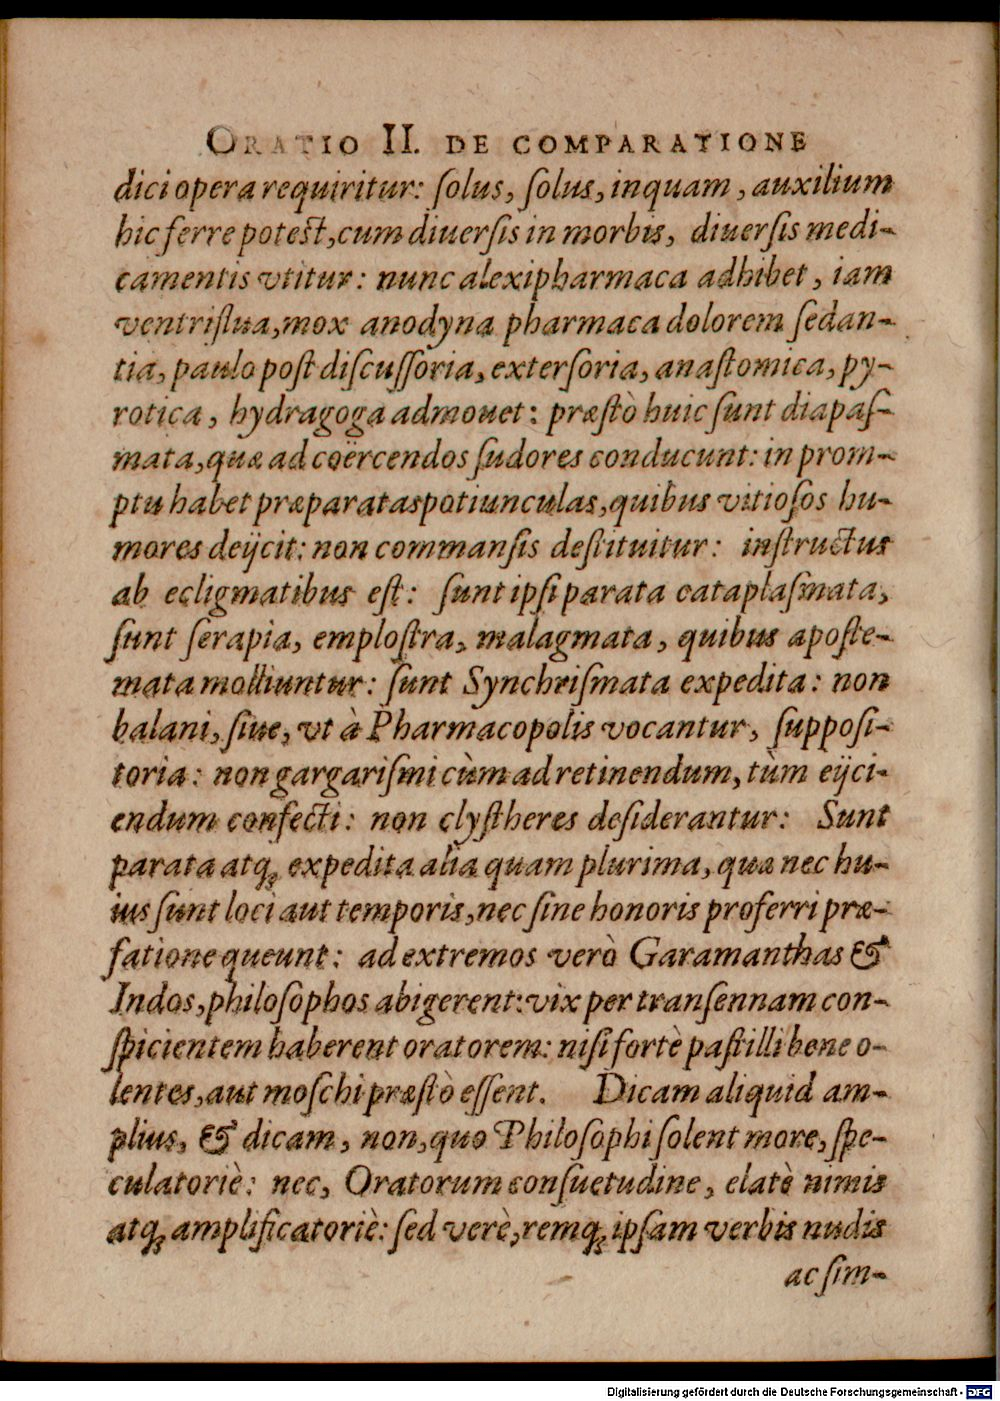 ORATIO II. DE COMPARATIONE
dici opera requiritur: ſolus, ſolus, inquam, auxilium
hic ferre poteſt, cum diuerſis in morbis, diuerſis medi-
camentis vtitur: nunc alexipharmaca adhibet, iam
ventriflua, mox anodyna pharmaca dolorem ſedan-
tia, paulo poſt diſcuſſoria, exterſoria, anaſtomica, py-
rotica, hydragoga admouet: præſtò huic ſunt diapaſ-
mata, quæ ad coërcendos ſudores conducunt: in prom-
ptu habet præparatas potiunculas, quibus vitioſos hu-
mores deijcit: non commanſis deſtituitur: inſtructus
ab ecligmatibus eſt: ſunt ipſi parata cataplaſmata,
ſunt ſerapia, emploſtra, malagmata, quibus apoſte-
mata molliuntur: ſunt Synchriſmata expedita: non
balani, ſiue, vt à Pharmacopolis vocantur, ſuppoſi-
toria: non gargariſmi cùm ad retinendum, tùm eijci-
endum confecti: non clyſtheres deſiderantur: Sunt
parata atq; expedita alia quam plurima, quæ nec hu-
ius ſunt loci aut temporis, nec ſine honoris proferri præ-
fatione queunt: ad extremos verò Garamanthas &
Indos, philoſophos abigerent: vix per tranſennam con-
ſpicientem haberent oratorem: niſi fortè paſtilli bene o-
lentes, aut moſchi præſtò eſſent. Dicam aliquid am-
plius, & dicam, non, quo Philoſophi ſolent more, ſpe-
culatoriè: nec, Oratorum conſuetudine, elatè nimis
atq; amplificatoriè: ſed verè, remq; ipſam verbis nudis
ac ſim-
Digitalisierung gefördert durch die Deutsche Forschungsgemeinschaft - DFG